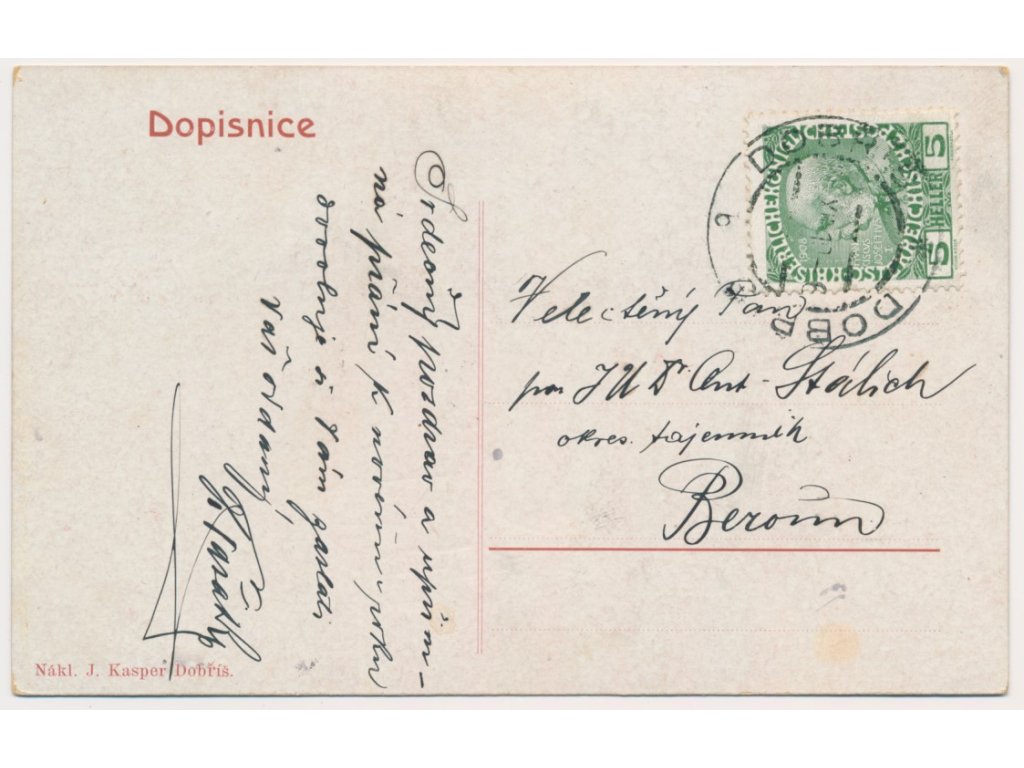 Dopisnice
Srdečný pozdrav a upřím-
ná přání k novému roku
dovoluje si Vám zaslati
Váš oddaný
Velectěný Pan
pan JUDr Ant. Šťálich
okres. tajemník
Beroun
Nákl. J. Kasper Dobříš.
5 HELLER 5
1908
DOBŘÍŠ
DOBR